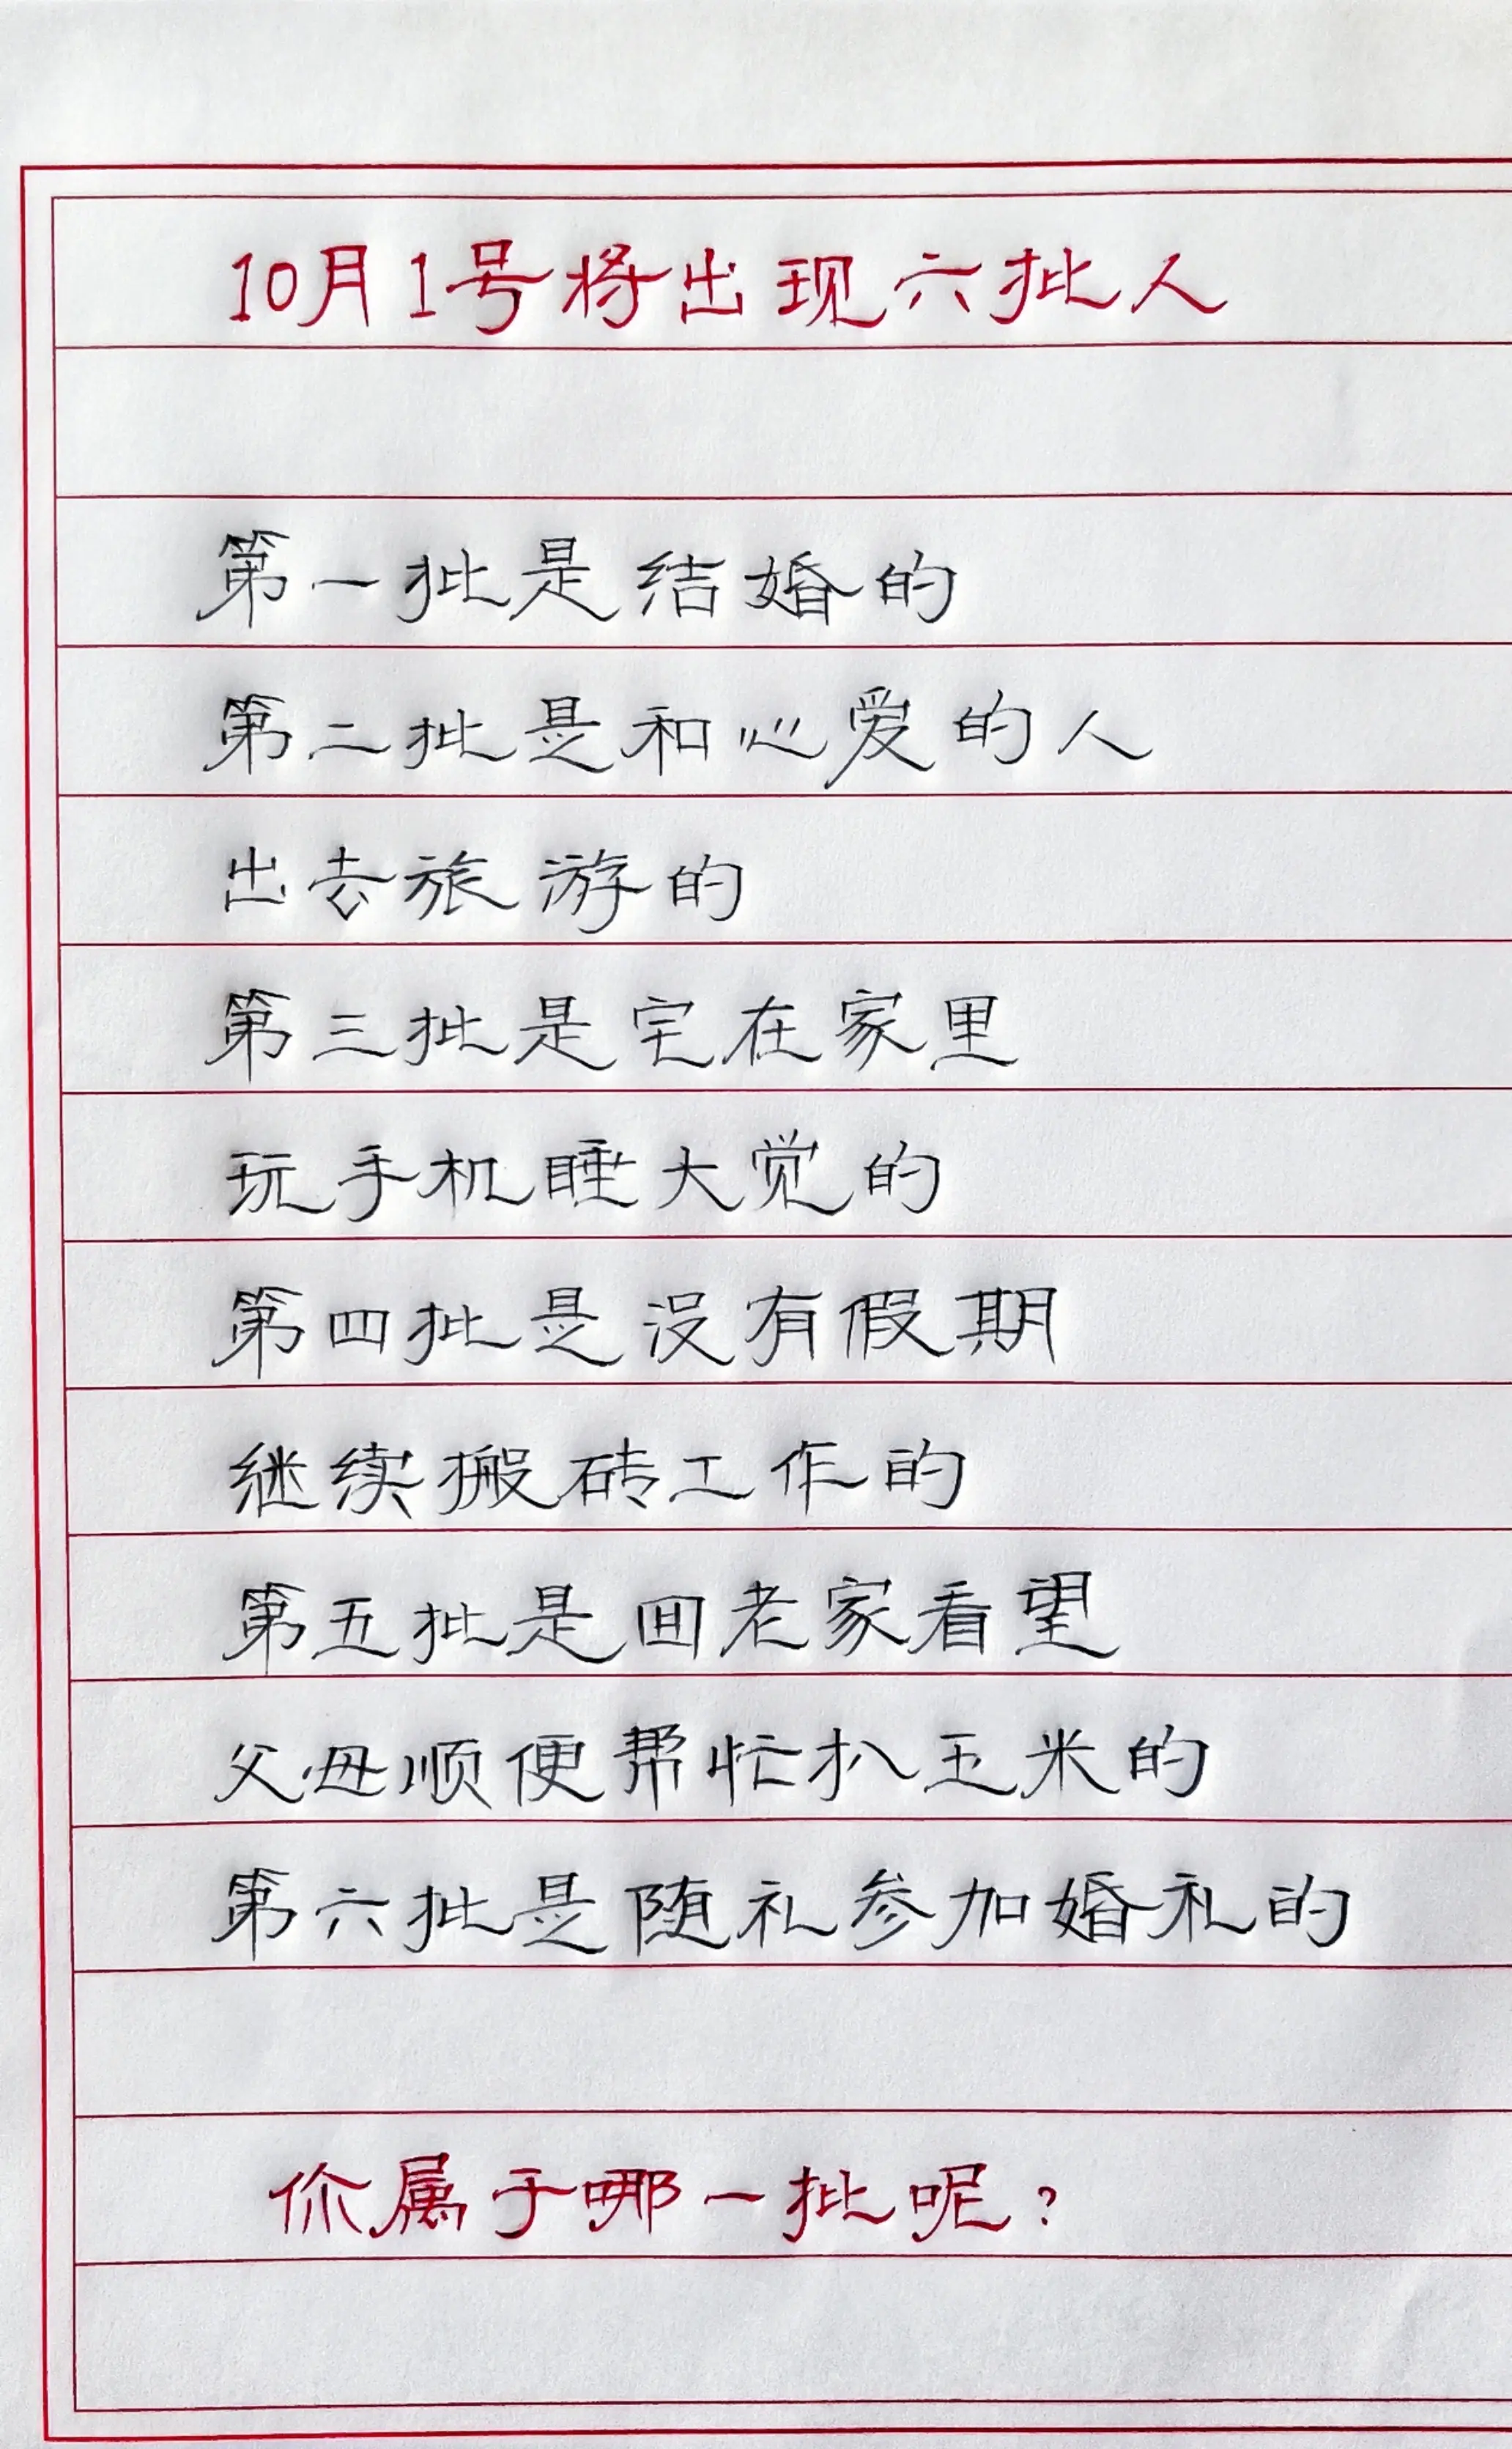 10月1号将出现六批人
第一批是结婚的
第二批是和心爱的人
出去旅游的
第三批是宅在家里
玩手机睡大觉的
第四批是没有假期
继续搬砖工作的
第五批是回老家看望
父母顺便帮忙扒玉米的
第六批是随礼参加婚礼的
你属于哪一批呢?